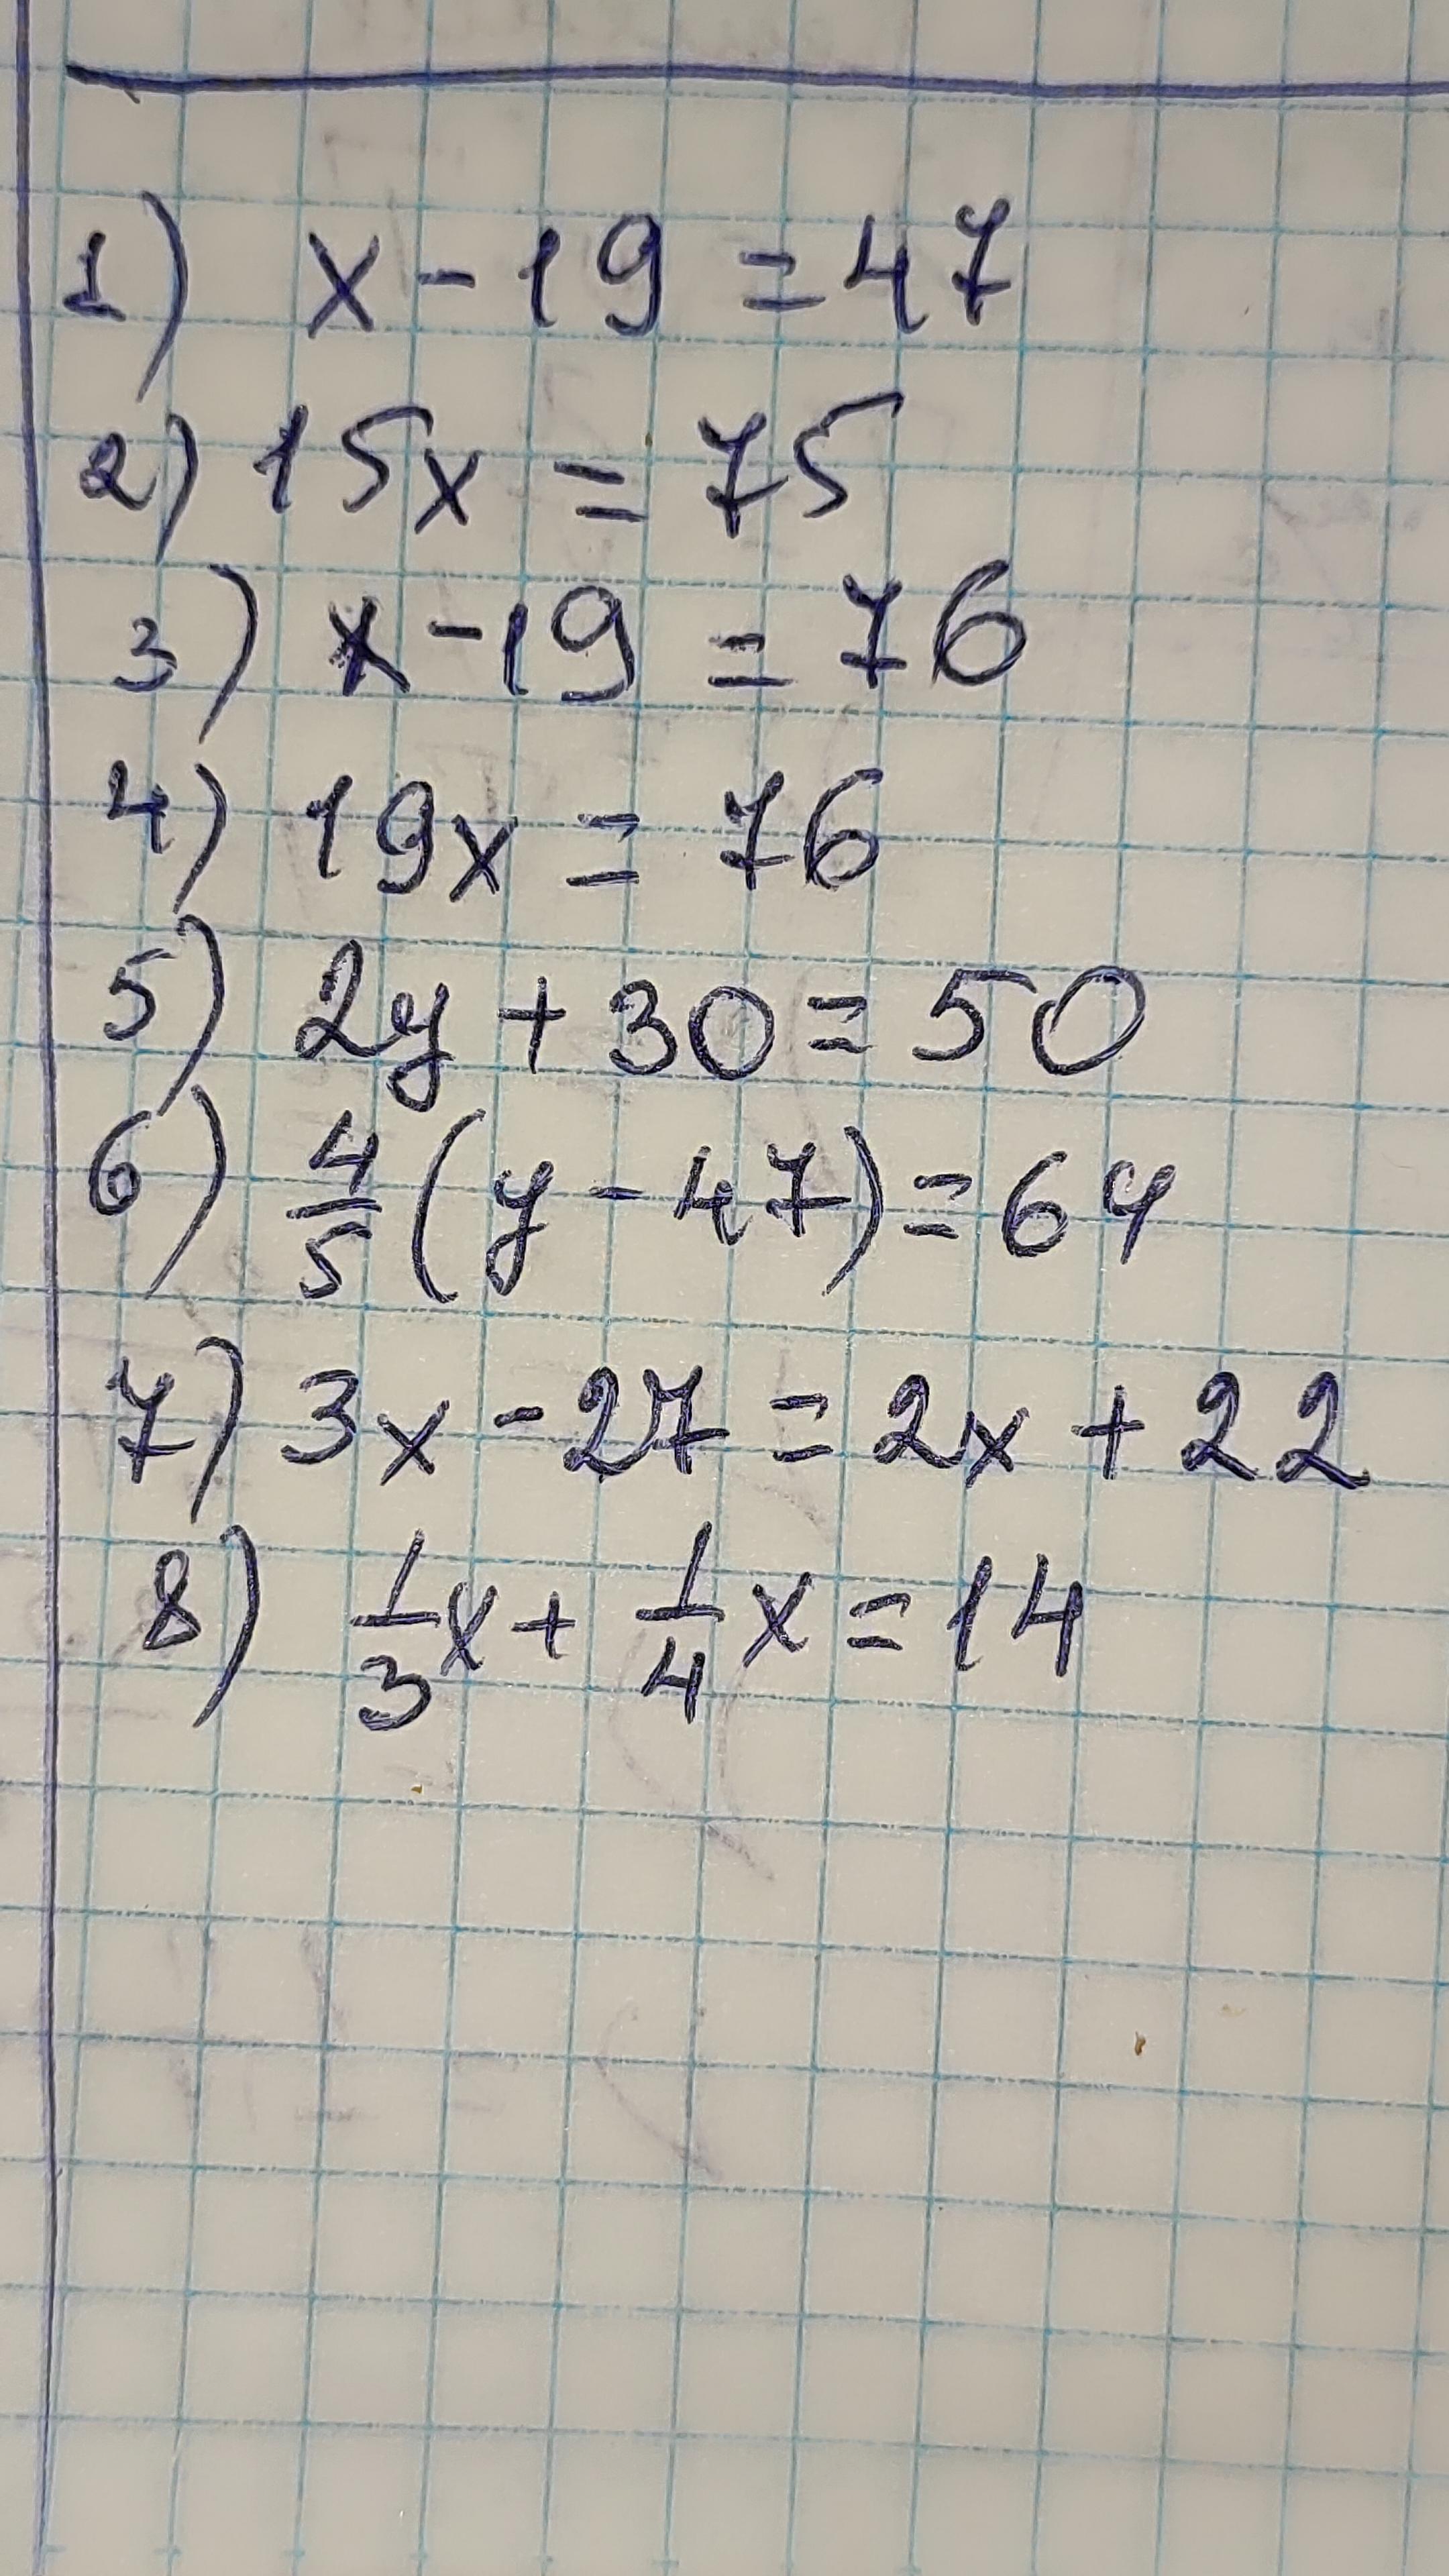 1) x - 19 = 47
2) 15x = 75
3) x - 19 = 76
4) 19x = 76
5) 2y + 30 = 50
6) 4/5 (y - 47) = 64
7) 3x - 27 = 2x + 22
8) 1/3 x + 1/4 x = 14